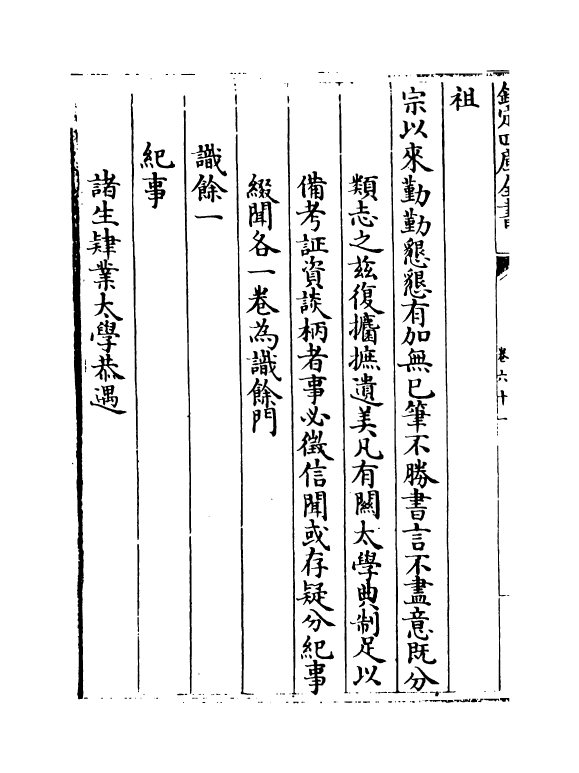 欽定四庫全書
卷六十一
祖
宗以來勤勤懇懇有加無已筆不勝書言不盡意既分
類志之玆復攟摭遺美凡有關太學典制足以
備考証資談柄者事必徵信聞或存疑分紀事
綴聞各一卷為識餘門
識餘一
紀事
諸生肄業太學恭遇